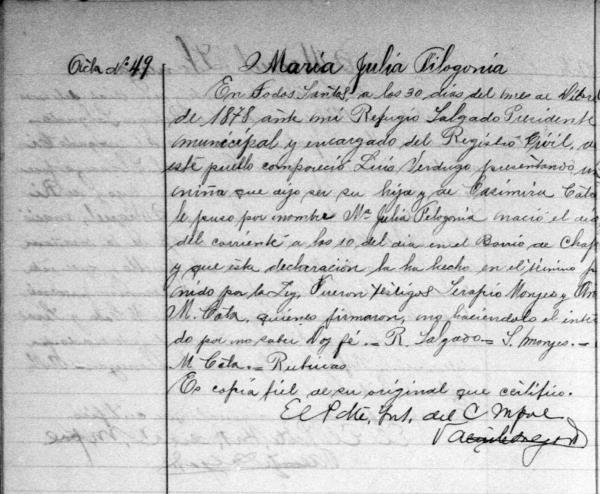 Acta Nº 49
María Julia Filogonia
En Todos Santos, a los 30 días del mes de
de 1878 ante mi Refugio Salgado Presidente
municipal y encargado del Registro Civil, de
este pueblo compareció Luis Verdugo presentando
niña que dijo ser su hija y de Casimira Cota
le puso por nombre Mª Julia Filogonia nació el dia
del corriente a las 10 del dia en el Barrio de
y que esta declaración la ha hecho en el término
nido por la Ley. Fueron testigos Serapio Monjes y
M. Cota, quienes firmaron, no haciendolo el
do por no saber Doy fé. = R. Salgado = S. Monjes. =
M Cota. = Rubricas
Es copia fiel de su original que certifico.
El Pdte. Int. del C. Mpal